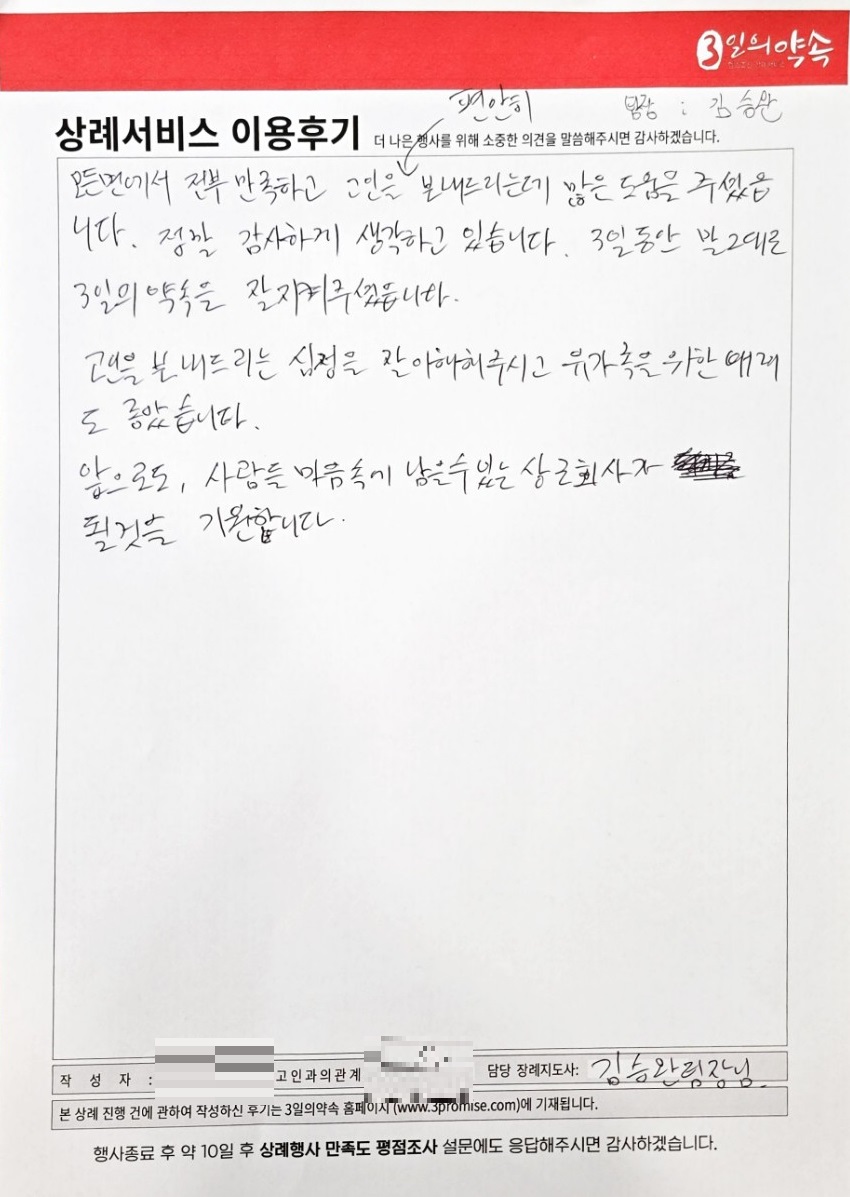 3일의약속
편안히 팀장 : 김승완
상례서비스 이용후기 더 나은 행사를 위해 소중한 의견을 말씀해주시면 감사하겠습니다.
모든면에서 전부 만족하고 고인을 보내드리는데 많은 도움을 주셨습
니다. 정말 감사하게 생각하고 있습니다. 3일동안 말그대로
3일의 약속을 잘지켜주셨습니다.
고인을 보내드리는 심정을 잘 이해해주시고 유가족을 위한 배려
도 좋았습니다.
앞으로도, 사람들 마음속에 남을수 있는 상조회사가
될것을 기원합니다.
작 성 자 : 고인과의관계 담당 장례지도사: 김승완팀장님
본 상례 진행 건에 관하여 작성하신 후기는 3일의약속 홈페이지 (www.3promise.com)에 기재됩니다.
행사종료 후 약 10일 후 상례행사 만족도 평점조사 설문에도 응답해주시면 감사하겠습니다.